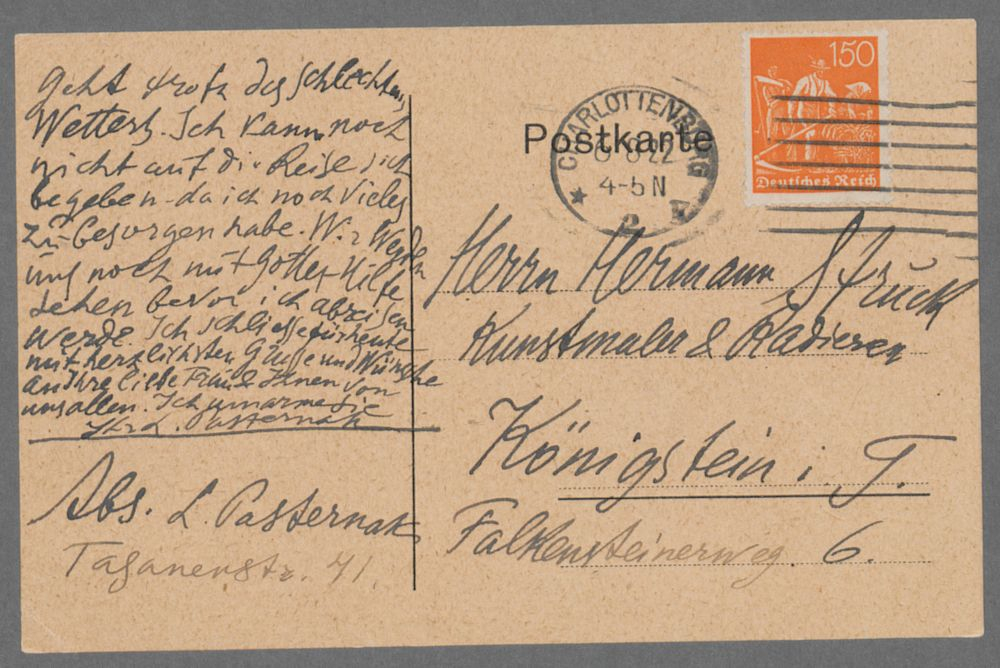 Geht trotz des schlechten
Wetters. Ich kann noch
nicht auf die Reise sich
begeben - da ich noch Vieles
zu besorgen habe. Wir werden
uns noch mit Gottes Hilfe
sehen bevor ich abreisen
werde. Ich schliesse für heute
mit herzlichsten Grüsse und Wünsche
an Ihre liebe Frau & Ihnen von
uns allen. Ich umarme Sie
Ihr L. Pasternak
Abs. L. Pasternak
Postkarte
CHARLOTTENBURG
8 22
4-5 N
2
150
Deutsches Reich
Herrn Hermann Struck
Kunstmaler & Radierer
Königstein i. T.
Falkensteinerweg. 6.